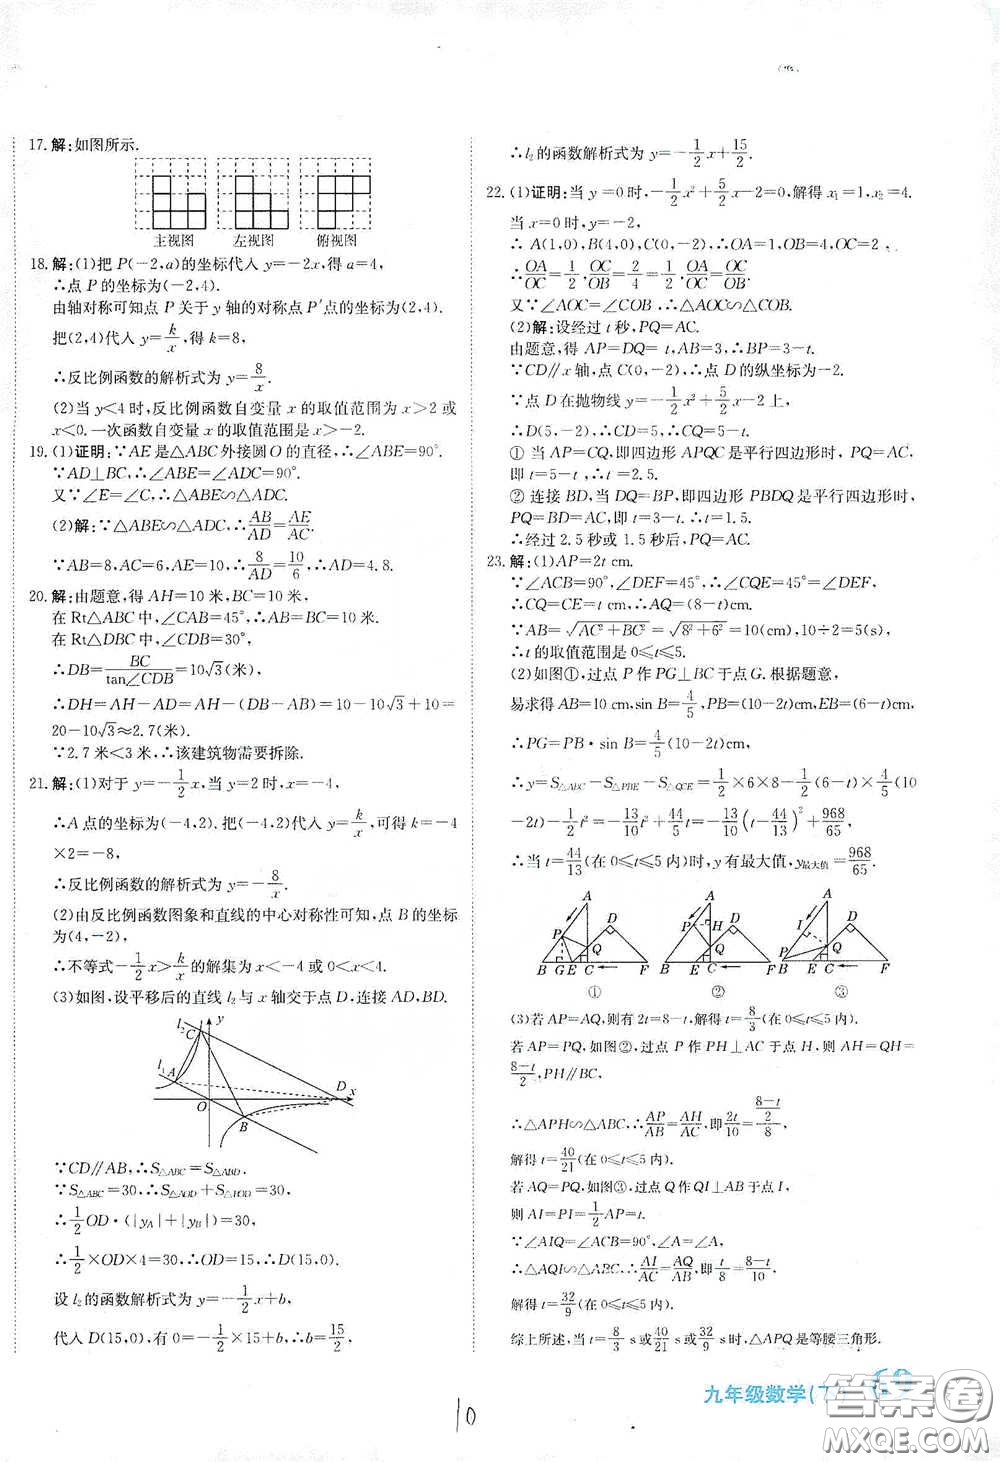 17.解:如图所示.
主视图 左视图 俯视图
18.解:(1)把 P(-2,a)的坐标代入 y=-2x,得 a=4,
∴点 P 的坐标为(-2,4).
由轴对称可知点 P 关于 y 轴的对称点 P′点的坐标为(2,4).
把(2,4)代入 y=k/x,得 k=8,
∴反比例函数的解析式为 y=8/x.
(2)当 y<4 时,反比例函数自变量 x 的取值范围为 x>2 或
x<0.一次函数自变量 x 的取值范围是 x>-2.
19.(1)证明:∵AE 是△ABC 外接圆 O 的直径,∴∠ABE=90°.
∵AD⊥BC,∴∠ABE=∠ADC=90°.
又∵∠E=∠C,∴△ABE∽△ADC.
(2)解:∵△ABE∽△ADC,∴AB/AD=AE/AC.
∵AB=8,AC=6,AE=10,∴8/AD=10/6,∴AD=4.8.
20.解:由题意,得 AH=10 米,BC=10 米,
在 Rt△ABC 中,∠CAB=45°,∴AB=BC=10 米,
在 Rt△DBC 中,∠CDB=30°,
∴DB=BC/tan∠CDB=10√3(米),
∴DH=AH-AD=AH-(DB-AB)=10-10√3+10=
20-10√3≈2.7(米).
∵2.7 米<3 米,∴该建筑物需要拆除.
21.解:(1)对于 y=-1/2x,当 y=2 时,x=-4,
∴A 点的坐标为(-4,2).把(-4,2)代入 y=k/x,可得 k=-4
×2=-8,
∴反比例函数的解析式为 y=-8/x.
(2)由反比例函数图象和直线的中心对称性可知,点 B 的坐标
为(4,-2),
∴不等式-1/2x>k/x的解集为 x<-4 或 0<x<4.
(3)如图,设平移后的直线 l₂ 与 x 轴交于点 D,连接 AD,BD.
l₂ C y
l₁ A D x
O B
∵CD∥AB,∴S△ABC=S△ABD.
∵S△ABC=30,∴S△AOD+S△BOD=30,
∴1/2OD·(|yA|+|yB|)=30,
∴1/2×OD×4=30,∴OD=15,∴D(15,0).
设 l₂ 的函数解析式为 y=-1/2x+b,
代入 D(15,0),有 0=-1/2×15+b,∴b=15/2.
∴l₂ 的函数解析式为 y=-1/2x+15/2.
22.(1)证明:当 y=0 时,-1/2x²+5/2x-2=0,解得 x₁=1,x₂=4.
当 x=0 时,y=-2,
∴ A(1,0),B(4,0),C(0,-2),∴OA=1,OB=4,OC=2,
∴OA/OC=1/2,OC/OB=2/4=1/2,∴OA/OC=OC/OB.
又∵∠AOC=∠COB,∴△AOC∽△COB.
(2)解:设经过 t 秒,PQ=AC.
由题意,得 AP=DQ= t,AB=3,∴BP=3-t.
∵CD∥x 轴,点 C(0,-2),∴点 D 的纵坐标为-2.
∵点 D 在抛物线 y=-1/2x²+5/2x-2上,
∴D(5,-2),∴CD=5,∴CQ=5-t.
① 当 AP=CQ,即四边形 APQC 是平行四边形时,PQ=AC,
即 t=5-t,∴t=2.5.
② 连接 BD,当 DQ=BP,即四边形 PBDQ 是平行四边形时,
PQ=BD=AC,即 t=3-t,∴t=1.5.
∴经过 2.5 秒或 1.5 秒时,PQ=AC.
23.解:(1)AP=2t cm.
∵∠ACB=90°,∠DEF=45°,∴∠CQE=45°=∠DEF,
∴CQ=CE=t cm,∴AQ=(8-t)cm.
∵AB=√AC²+BC²=√8²+6²=10(cm),10÷2=5(s),
∴t 的取值范围是 0≤t≤5.
(2)如图①,过点 P 作 PG⊥BC 于点 G.根据题意,
易求得 AB=10 cm,sin B=4/5,PB=(10-2t)cm,EB=(6-t)cm,
∴PG=PB·sin B=4/5(10-2t)cm,
∴y=S△ABC-S△PBE-S△QCE=1/2×6×8-1/2(6-t)×4/5(10
-2t)-1/2t²=-13/10t²+44/5t=-13/10(t-44/13)²+968/65,
∴当 t=44/13(在 0≤t≤5 内)时,y 有最大值,y最大值=968/65.
A P D Q B G E C F
①
A P H D Q B E C F
②
A I D Q P B E C F
③
(3)若 AP=AQ,则有 2t=8-t,解得 t=8/3(在 0≤t≤5 内).
若 AP=PQ,如图②,过点 P 作 PH⊥AC 于点 H,则 AH=QH=
8-t/2,PH∥BC,
∴△APH∽△ABC,∴AP/AB=AH/AC,即2t/10=8-t/2/8,
解得 t=40/21(在 0≤t≤5 内).
若 AQ=PQ,如图③,过点 Q 作 QI⊥AB 于点 I,
则 AI=PI=1/2AP=t.
∵∠AIQ=∠ACB=90°,∠A=∠A,
∴△AQI∽△ABC,∴AI/AC=AQ/AB,即t/8=8-t/10.
解得 t=32/9(在 0≤t≤5 内).
综上所述,当 t=8/3 s或40/21 s或32/9 s时,△APQ 是等腰三角形.
九年级数学
10
答案圈
MXQE.COM